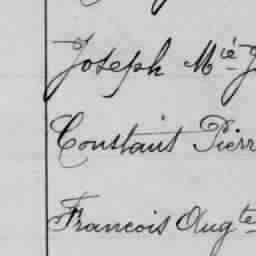 Joseph Mié
Constant Pierr
Francois Augte